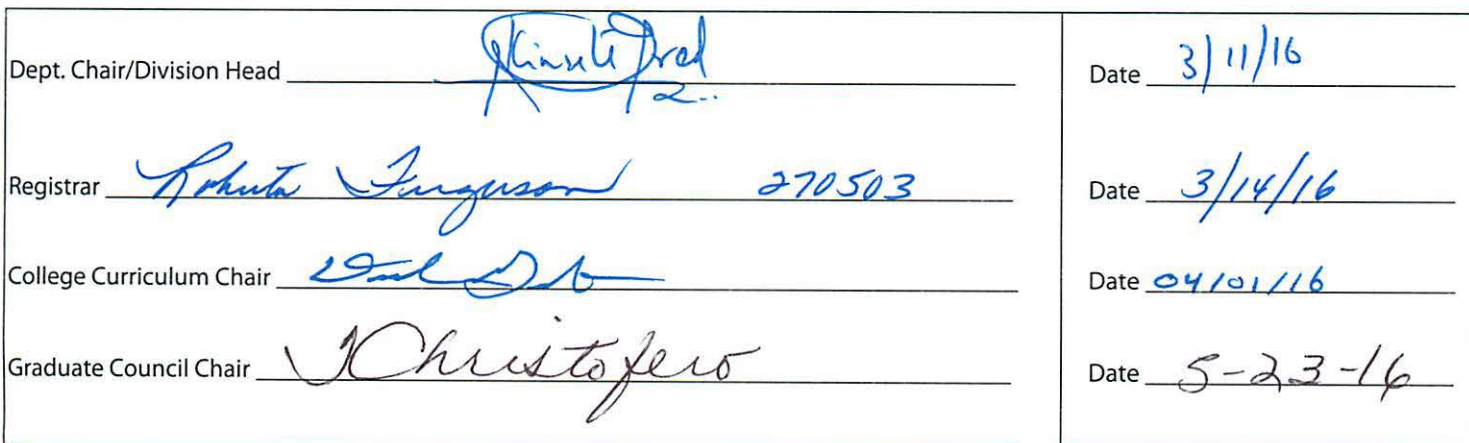 Dept. Chair/Division Head Date 3/11/16
Registrar Roberta Ferguson 270503 Date 3/14/16
College Curriculum Chair Date 04/01/16
Graduate Council Chair TChristofero Date 5-23-16